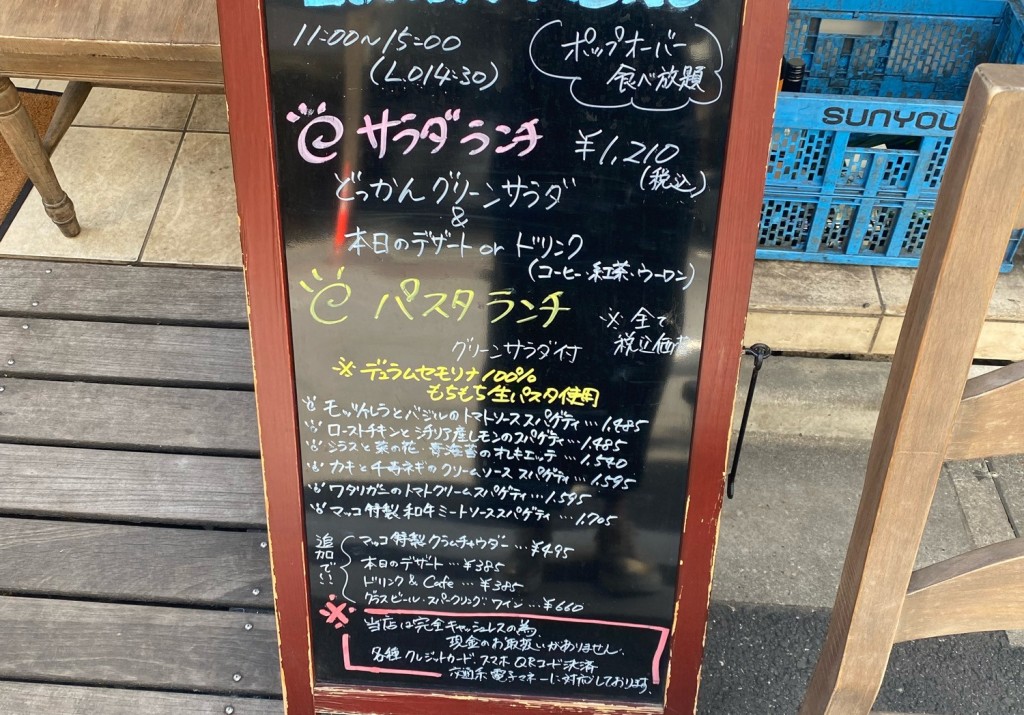 11:00〜15:00
(L.O14:30)
ポップオーバー
食べ放題
サラダランチ ¥1,210
(税込)
どっかんグリーンサラダ
&
本日のデザート or ドリンク
(コーヒー・紅茶・ウーロン)
パスタランチ
※全て
税込価格
グリーンサラダ付
※デュラムセモリナ100%
もちもち生パスタ使用
モッツァレラとバジルのトマトソーススパゲティ…1.485
ローストチキンとシチリア産レモンのスパゲティ…1.485
シラスと菜の花・青海苔のオレキエッテ…1.540
カキと千寿ネギのクリームソース スパゲティ…1.595
ワタリガニのトマトクリームスパゲティ…1.595
マッコ特製和牛ミートソーススパゲティ…1.705
追加で!!
マッコ特製クラムチャウダー…¥495
本日のデザート…¥385
ドリンク & Cafe…¥385
グラスビール・スパークリング・ワイン…¥660
※
当店は完全キャッシュレスの為、
現金のお取扱いがありません。
各種クレジットカード、スマホQRコード決済
交通系電子マネーに対応しております。
SUNYOU